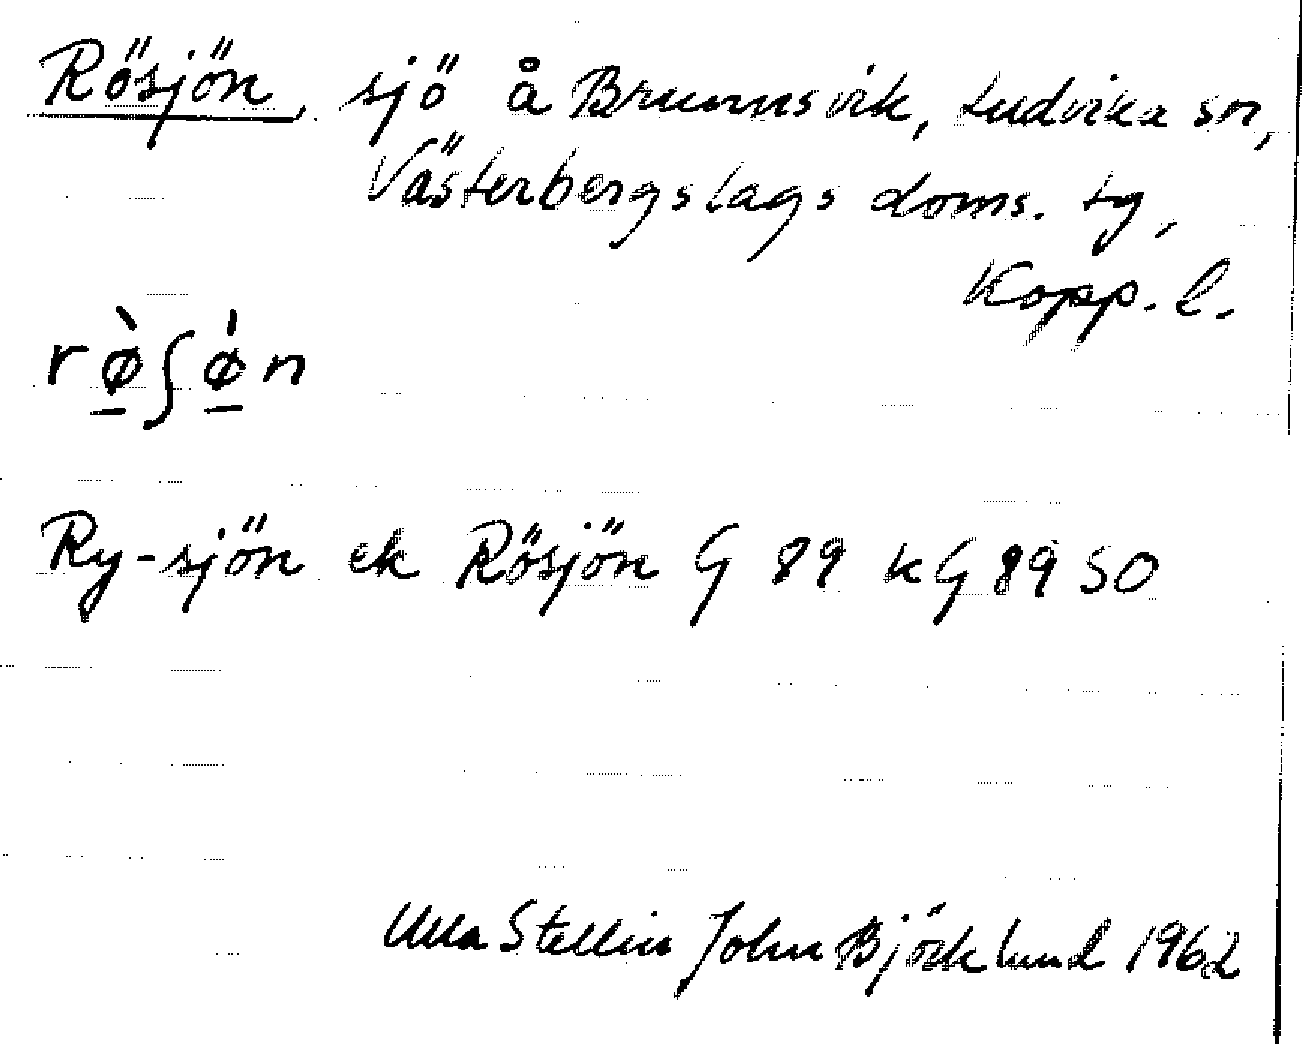 Rösjön, sjö å Brunnsvik, Ludvika sn,
Västerbergslags doms. tg,
Kopp. l.
rø̀ʃø̍n
Ry-sjön ek Rösjön G 89 kG 89 SO
Ulla Stellin John Björklund 1962